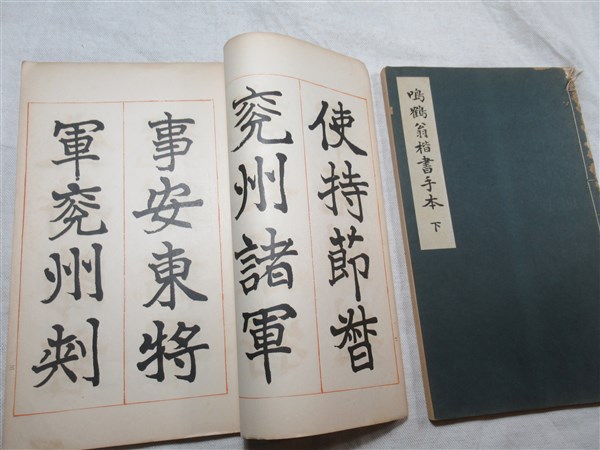 使持節督
兖州諸軍
事安東將
軍兖州刾
鳴鶴翁楷書手本 下